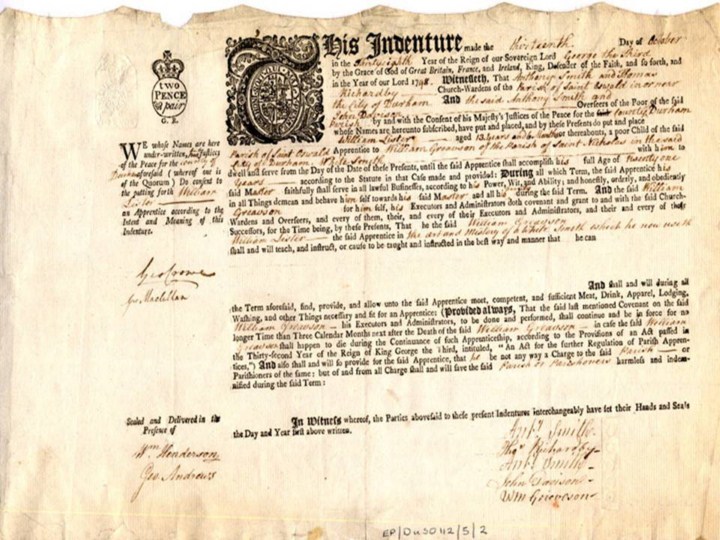 This Indenture made the thirteenth Day of October
in the thirty eighth Year of the Reign of our Sovereign Lord George the Third
by the Grace of God of Great Britain, France, and Ireland, King, Defender of the Faith, and so forth, and
in the Year of our Lord 1798. Witnesseth, That Anthony Smith and Thomas
Richardby Church-Wardens of the Parish of Saint Oswald in or near
the City of Durham And the said Anthony Smith and
John Davison Overseers of the Poor of the said
Parish by and with the Consent of his Majesty's Justices of the Peace for the County Durham
whose Names are hereunto subscribed, have put and placed, and by these Presents do put and place
William Lister aged Years or thereabouts, a poor Child of the said
Parish of Saint Oswald Apprentice to William Greawson of the Parish of Saint Nicholas in the said
City of Durham White Smith with him to
dwell and serve from the Day of the Date of these Presents, until the said Apprentice shall accomplish his full Age of twenty one
Years according to the Statute in that Case made and provided: During all which Term, the said Apprentice his
said Master faithfully shall serve in all lawful Businesses, according to his Power, Wit, and Ability; and honestly, orderly, and obediently
in all Things demean and behave himself towards his said Master and all his during the said Term. And the said William
Greawson for himself, his Executors and Administrators doth covenant and grant to and with the said Church-
Wardens and Overseers, and every of them, their, and every of their Executors and Administrators, and their and every of their
Successors, for the Time being, by these Presents, That he the said William Greawson
William Lister the said Apprentice in the art and Mistery of a White Smith which he now useth
shall and will teach, and instruct, or cause to be taught and instructed in the best way and manner that he can
And shall and will during all
the Term aforesaid, find, provide, and allow unto the said Apprentice meet, competent, and sufficient Meat, Drink, Apparel, Lodging,
Washing, and other Things necessary and fit for an Apprentice: (Provided always, That the said last mentioned Covenant on the said
William Greawson his Executors and Administrators, to be done and performed, shall continue and be in force for no
longer Time than Three Calendar Months next after the Death of the said William Greawson in case the said William
Greawson shall happen to die during the Continuance of such Apprenticeship, according to the Provisions of an Act passed in
the Thirty-second Year of the Reign of King George the Third, intituled, "An Act for the further Regulation of Parish Appren-
tices,") And also shall and will so provide for the said Apprentice, that he be not any way a Charge to the said Parish or
Parishioners of the same: but of and from all Charge shall and will save the said Parish or Parishioners harmless and indem-
nified during the said Term:
In Witness whereof, the Parties abovesaid to these present Indentures interchangeably have set their Hands and Seals
the Day and Year first above written.
Anty. Smith
Thos. Richardby
Anty. Smith
John Davison
Wm Grieveson
TWO
PENCE
a pair
G. E.
WE whose Names are here
under-written, Justices
of the Peace for the County of
Durham aforesaid (whereof one is
of the Quorum) Do consent to
the putting forth William
Lister
an Apprentice according to the
Intent and Meaning of this
Indenture.
Geo Coome
Jn. Maclellan
Sealed and Delivered in the
Presence of
Wm Henderson
Geo. Andrews
EP/DuSO 112/5/2